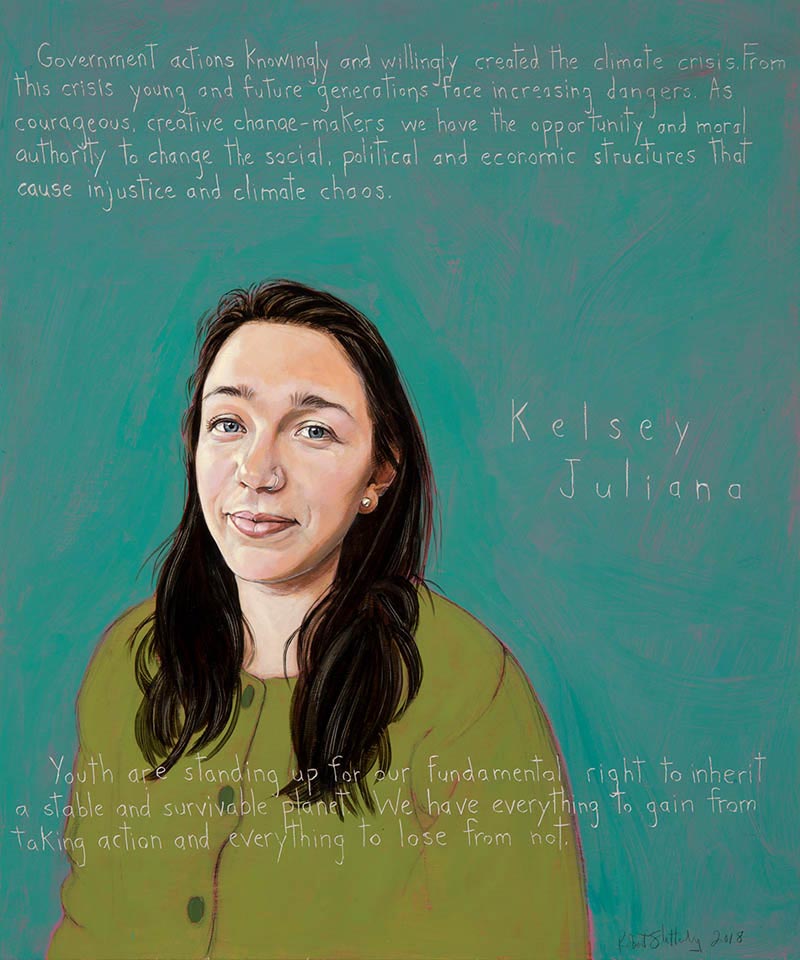 Government actions knowingly and willingly created the climate crisis. From
this crisis young and future generations face increasing dangers. As
courageous, creative change-makers we have the opportunity and moral
authority to change the social, political and economic structures that
cause injustice and climate chaos.
Kelsey
Juliana
Youth are standing up for our fundamental right to inherit
a stable and survivable planet. We have everything to gain from
taking action and everything to lose from not.
Robert Shetterly 2018